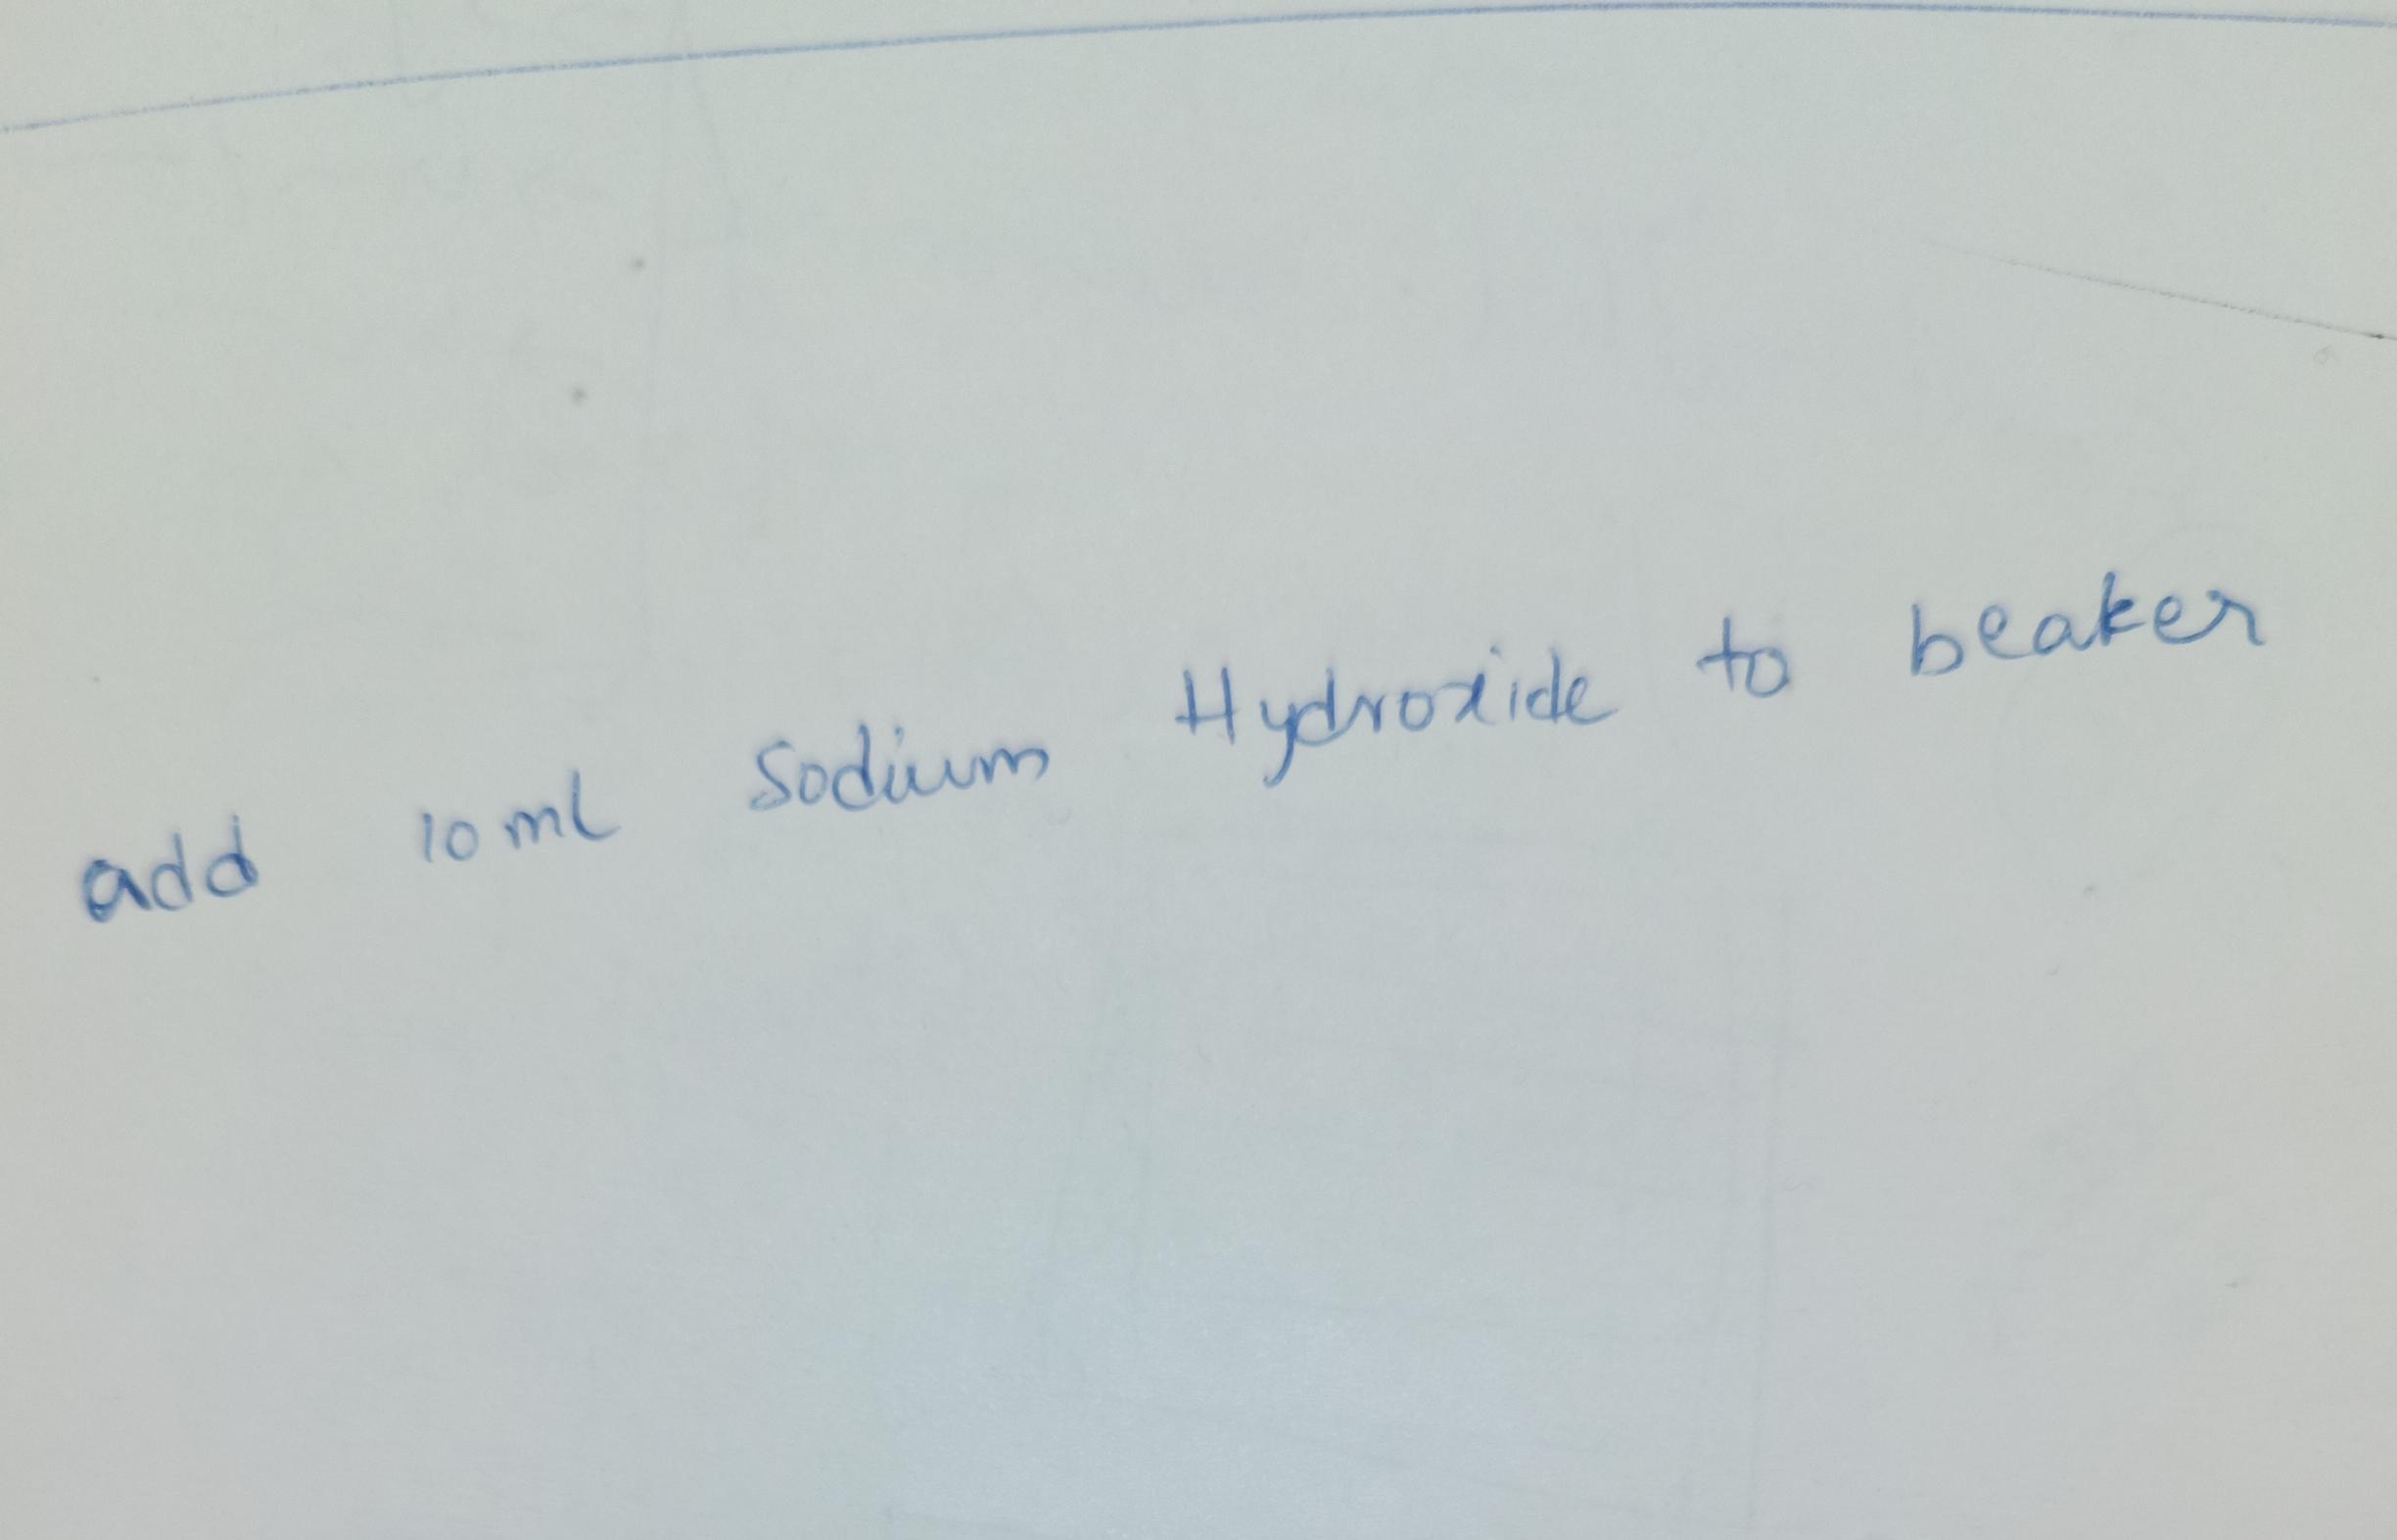 add 10 ml Sodium Hydroxide to beaker